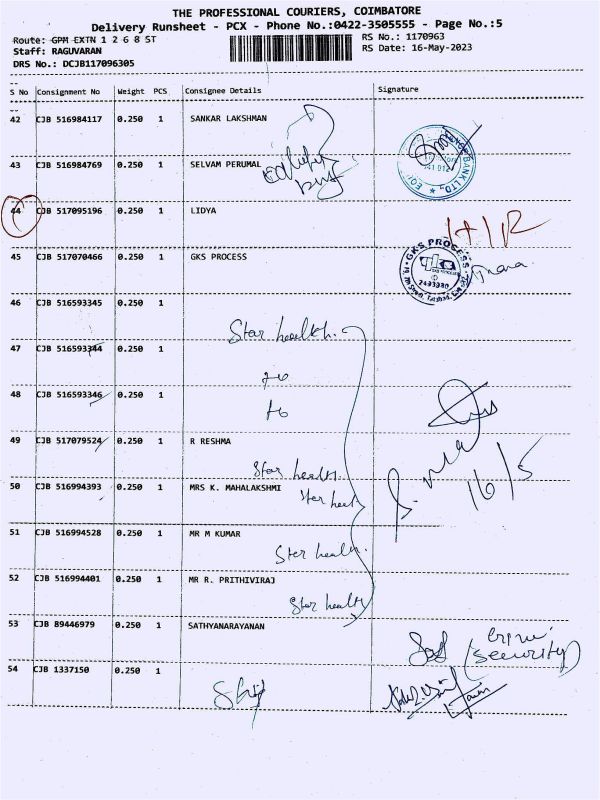 THE PROFESSIONAL COURIERS, COIMBATORE
Delivery Runsheet - PCX - Phone No.:0422-3505555 - Page No.:5
Route: GPM EXTN 1 2 6 8 ST
RS No.: 1170963
Staff: RAGUVARAN
RS Date: 16-May-2023
DRS No.: DCJB117096305
S No Consignment No Weight PCS Consignee Details Signature
42 CJB 516984117 0.250 1 SANKAR LAKSHMAN
43 CJB 516984769 0.250 1 SELVAM PERUMAL
BANK LTD.
44 CJB 517095196 0.250 1 LIDYA
45 CJB 517070466 0.250 1 GKS PROCESS
GKS PROCESS
46 CJB 516593345 0.250 1
Star health.
47 CJB 516593344 0.250 1
48 CJB 516593346 0.250 1
49 CJB 517079524 0.250 1 R RESHMA
Star health.
16/5
50 CJB 516994393 0.250 1 MRS K. MAHALAKSHMI
Star healt
51 CJB 516994528 0.250 1 MR M KUMAR
Star health.
52 CJB 516994401 0.250 1 MR R. PRITHIVIRAJ
Star health
53 CJB 89446979 0.250 1 SATHYANARAYANAN
(security)
54 CJB 1337150 0.250 1